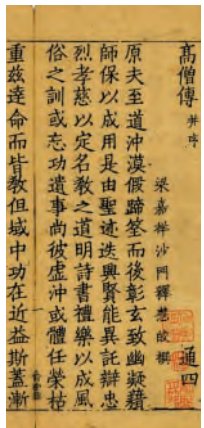 高僧傳 并序 通四
梁嘉祥沙門釋慧皎撰
原夫至道沖漠假蹄筌而後彰玄致幽凝藉
師保以成用是由聖迹迭興賢能異託辯忠
烈孝慈以定名教之道明詩書禮樂以成風
俗之訓或忘功遺事尚彼虛沖或體任榮枯
重茲達命而皆教但域中功在近益斯蓋漸